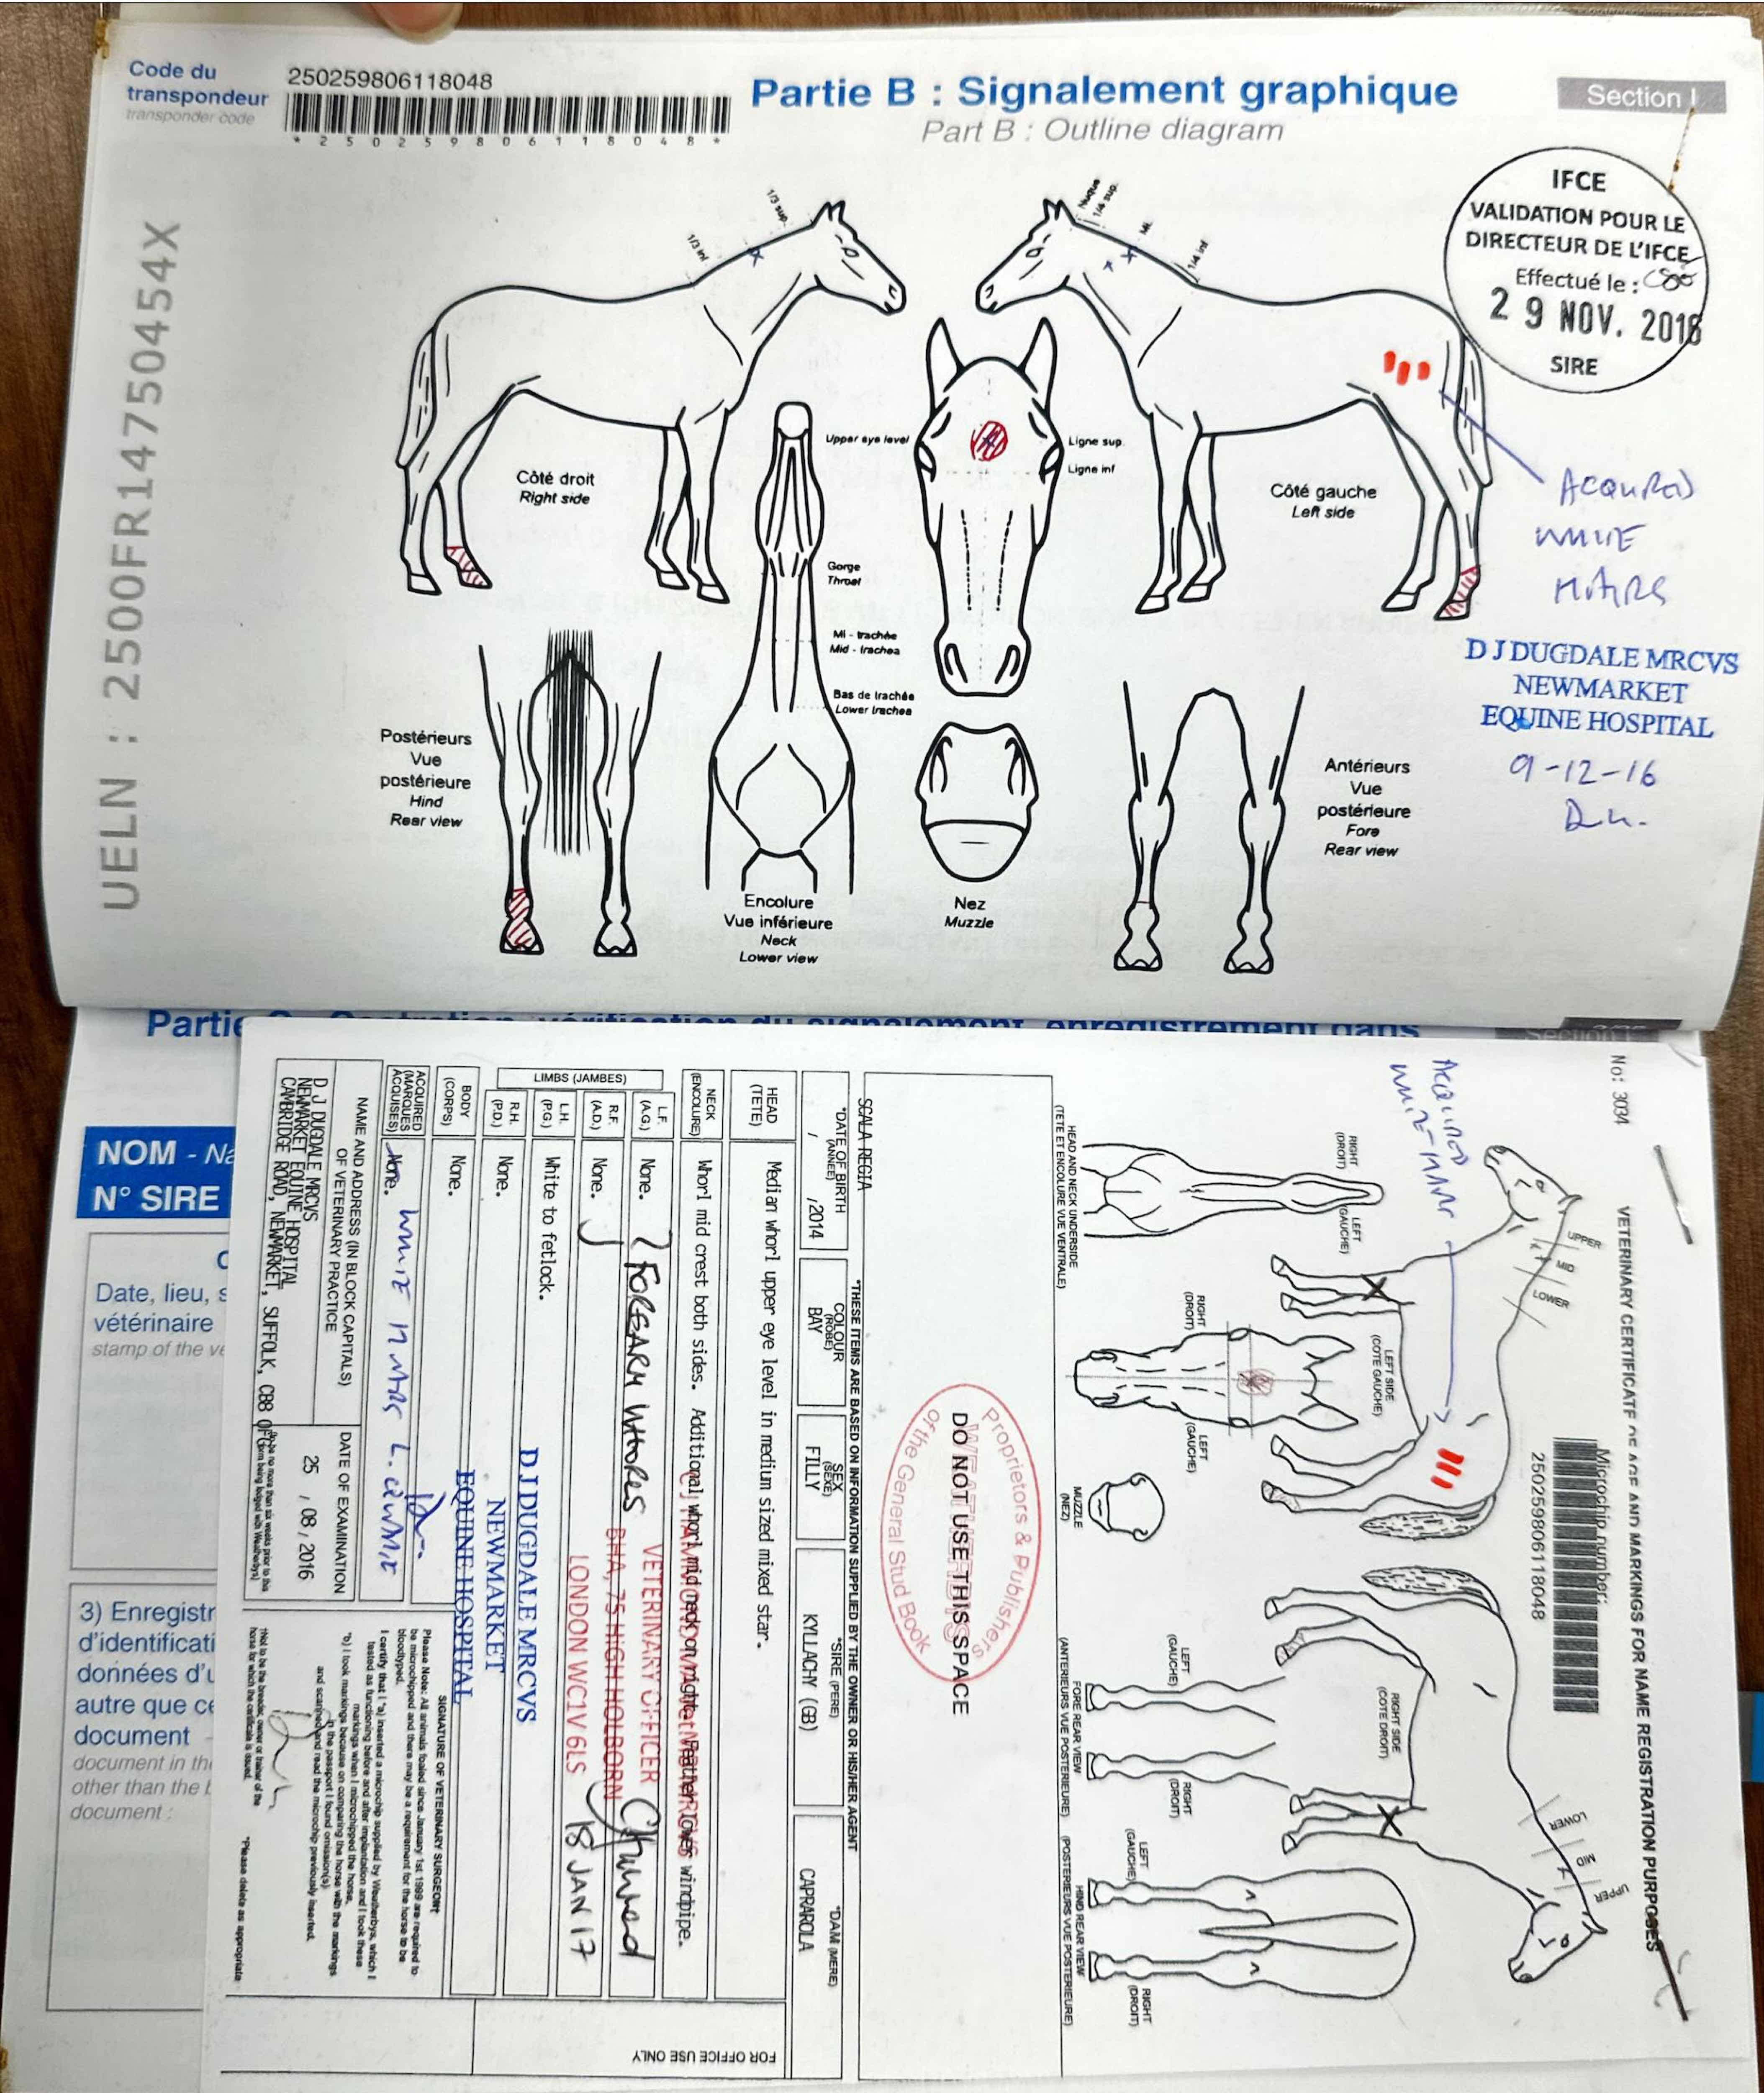 Code du
transpondeur
transponder code
250259806118048
* 2 5 0 2 5 9 8 0 6 1 1 8 0 4 8 *
Partie B : Signalement graphique
Part B : Outline diagram
Section I
UELN : 2500FR14750454X
IFCE
VALIDATION POUR LE
DIRECTEUR DE L'IFCE
Effectué le :
29 NOV. 2016
SIRE
1/3 sup.
1/3 inf
Nuque
1/4 sup.
Mi
1/4 inf
Upper eye level
Ligne sup.
Ligne inf
Côté droit
Right side
Côté gauche
Left side
ACQUIRED
WHITE
HAIRS
Gorge
Throat
Mi - trachée
Mid - trachea
Bas de trachée
Lower trachea
D J DUGDALE MRCVS
NEWMARKET
EQUINE HOSPITAL
9-12-16
Postérieurs
Vue
postérieure
Hind
Rear view
Antérieurs
Vue
postérieure
Fore
Rear view
Encolure
Vue inférieure
Neck
Lower view
Nez
Muzzle
Partie
NOM - Na
N° SIRE
Date, lieu, s
vétérinaire
stamp of the ve
3) Enregistr
d'identificati
données d'u
autre que ce
document
document in the
other than the b
document :
No: 3034
VETERINARY CERTIFICATE OF AGE AND MARKINGS FOR NAME REGISTRATION PURPOSES
Microchip number:
250259806118048
ACQUIRED
UPPER
MID
LOWER
LEFT SIDE
(COTE GAUCHE)
RIGHT SIDE
(COTE DROIT)
LOWER
MID
UPPER
RIGHT
(DROIT)
LEFT
(GAUCHE)
HEAD AND NECK UNDERSIDE
(TETE ET ENCOLURE VUE VENTRALE)
RIGHT
(DROIT)
LEFT
(GAUCHE)
MUZZLE
(NEZ)
LEFT
(GAUCHE)
RIGHT
(DROIT)
FORE REAR VIEW
(ANTERIEURS VUE POSTERIEURE)
LEFT
(GAUCHE)
RIGHT
(DROIT)
HIND REAR VIEW
(POSTERIEURS VUE POSTERIEURE)
Proprietors & Publishers
WEATHERBYS
of the General Stud Book
DO NOT USE THIS SPACE
SCALA REGIA
*THESE ITEMS ARE BASED ON INFORMATION SUPPLIED BY THE OWNER OR HIS/HER AGENT
*DATE OF BIRTH
(ANNEE)
/ /2014
COLOUR
(ROBE)
BAY
SEX
(SEXE)
FILLY
*SIRE (PERE)
KYLLACHY (GB)
*DAM (MERE)
CAPRAROLA
HEAD
(TETE)
Median whorl upper eye level in medium sized mixed star.
NECK
(ENCOLURE)
Whorl mid crest both sides. Additional whorl mid neck on right. Feather lower windpipe.
LIMBS (JAMBES)
L.F.
(A.G.)
None.
R.F.
(A.D.)
None.
FOREARM WHORLS
L.H.
(P.G.)
White to fetlock.
R.H.
(P.D.)
None.
BODY
(CORPS)
None.
ACQUIRED
(MARQUES
ACQUISES)
None.
WHITE HAIRS
VETERINARY OFFICER
BHA, 75 HIGH HOLBORN
LONDON WC1V 6LS
18 JAN 17
D J DUGDALE MRCVS
NEWMARKET
EQUINE HOSPITAL
NAME AND ADDRESS (IN BLOCK CAPITALS)
OF VETERINARY PRACTICE
D J DUGDALE MRCVS
NEWMARKET EQUINE HOSPITAL
CAMBRIDGE ROAD, NEWMARKET, SUFFOLK, CB8
DATE OF EXAMINATION
25 / 08 / 2016
SIGNATURE OF VETERINARY SURGEON†
Please Note: All animals foaled since January 1st 1999 are required to
be microchipped and there may be a requirement for the horse to be
bloodtyped.
I certify that I *a) inserted a microchip supplied by Weatherbys, which I
tested as functioning before and after implantation and I took these
markings when I microchipped the horse.
*b) I took markings because on comparing the horse with the markings
in the passport I found omission(s)
and scanned and read the microchip previously inserted.
†Not to be the breeder, owner or trainer of the
horse for which the certificate is issued.
*Please delete as appropriate
FOR OFFICE USE ONLY